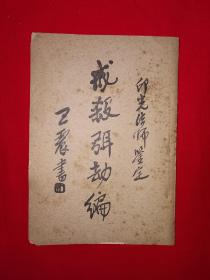 印光法師鑒定
戒殺弭劫編
王震書